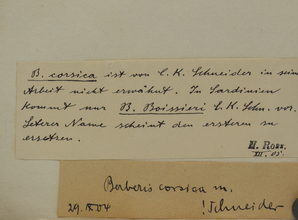 B. corsica ist von C. K. Schneider in sein
Arbeit nicht erwähnt. In Sardinien
kommt nur B. Boissieri C. K. Schn. vor.
Letzterer Name scheint den ersteren zu
ersetzen.
H. Ross.
XII. 05.
Berberis corsica m.
29. IX 04
! Schneider